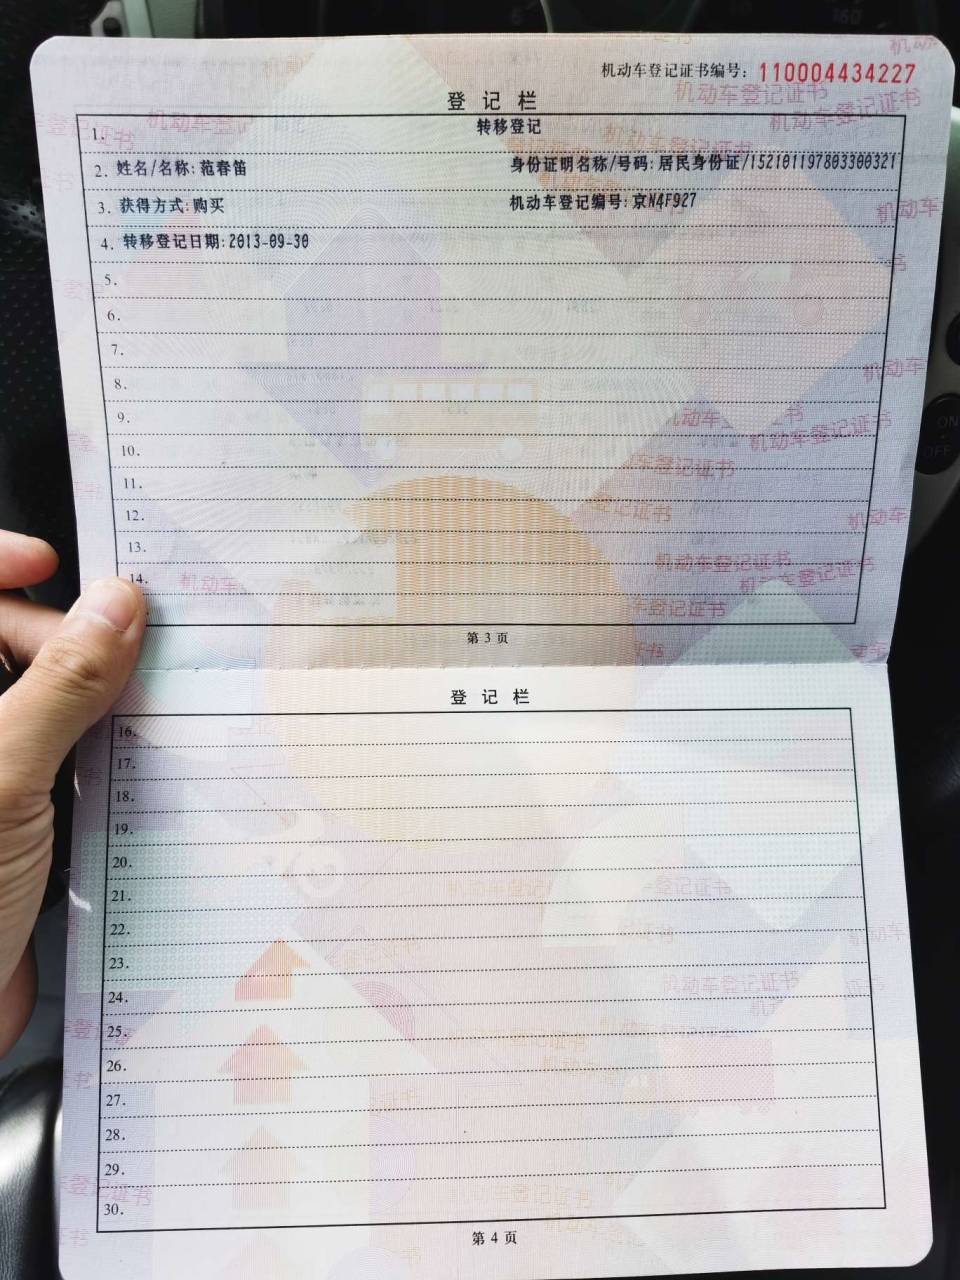 机动车登记证书编号：110004434227
登记栏
1. 转移登记
2. 姓名/名称:范春笛 身份证明名称/号码:居民身份证/152101197803300321
3. 获得方式:购买 机动车登记编号:京N4F927
4. 转移登记日期:2013-09-30
5.
6.
7.
8.
9.
10.
11.
12.
13.
14.
第3页
登记栏
16.
17.
18.
19.
20.
21.
22.
23.
24.
25.
26.
27.
28.
29.
30.
第4页